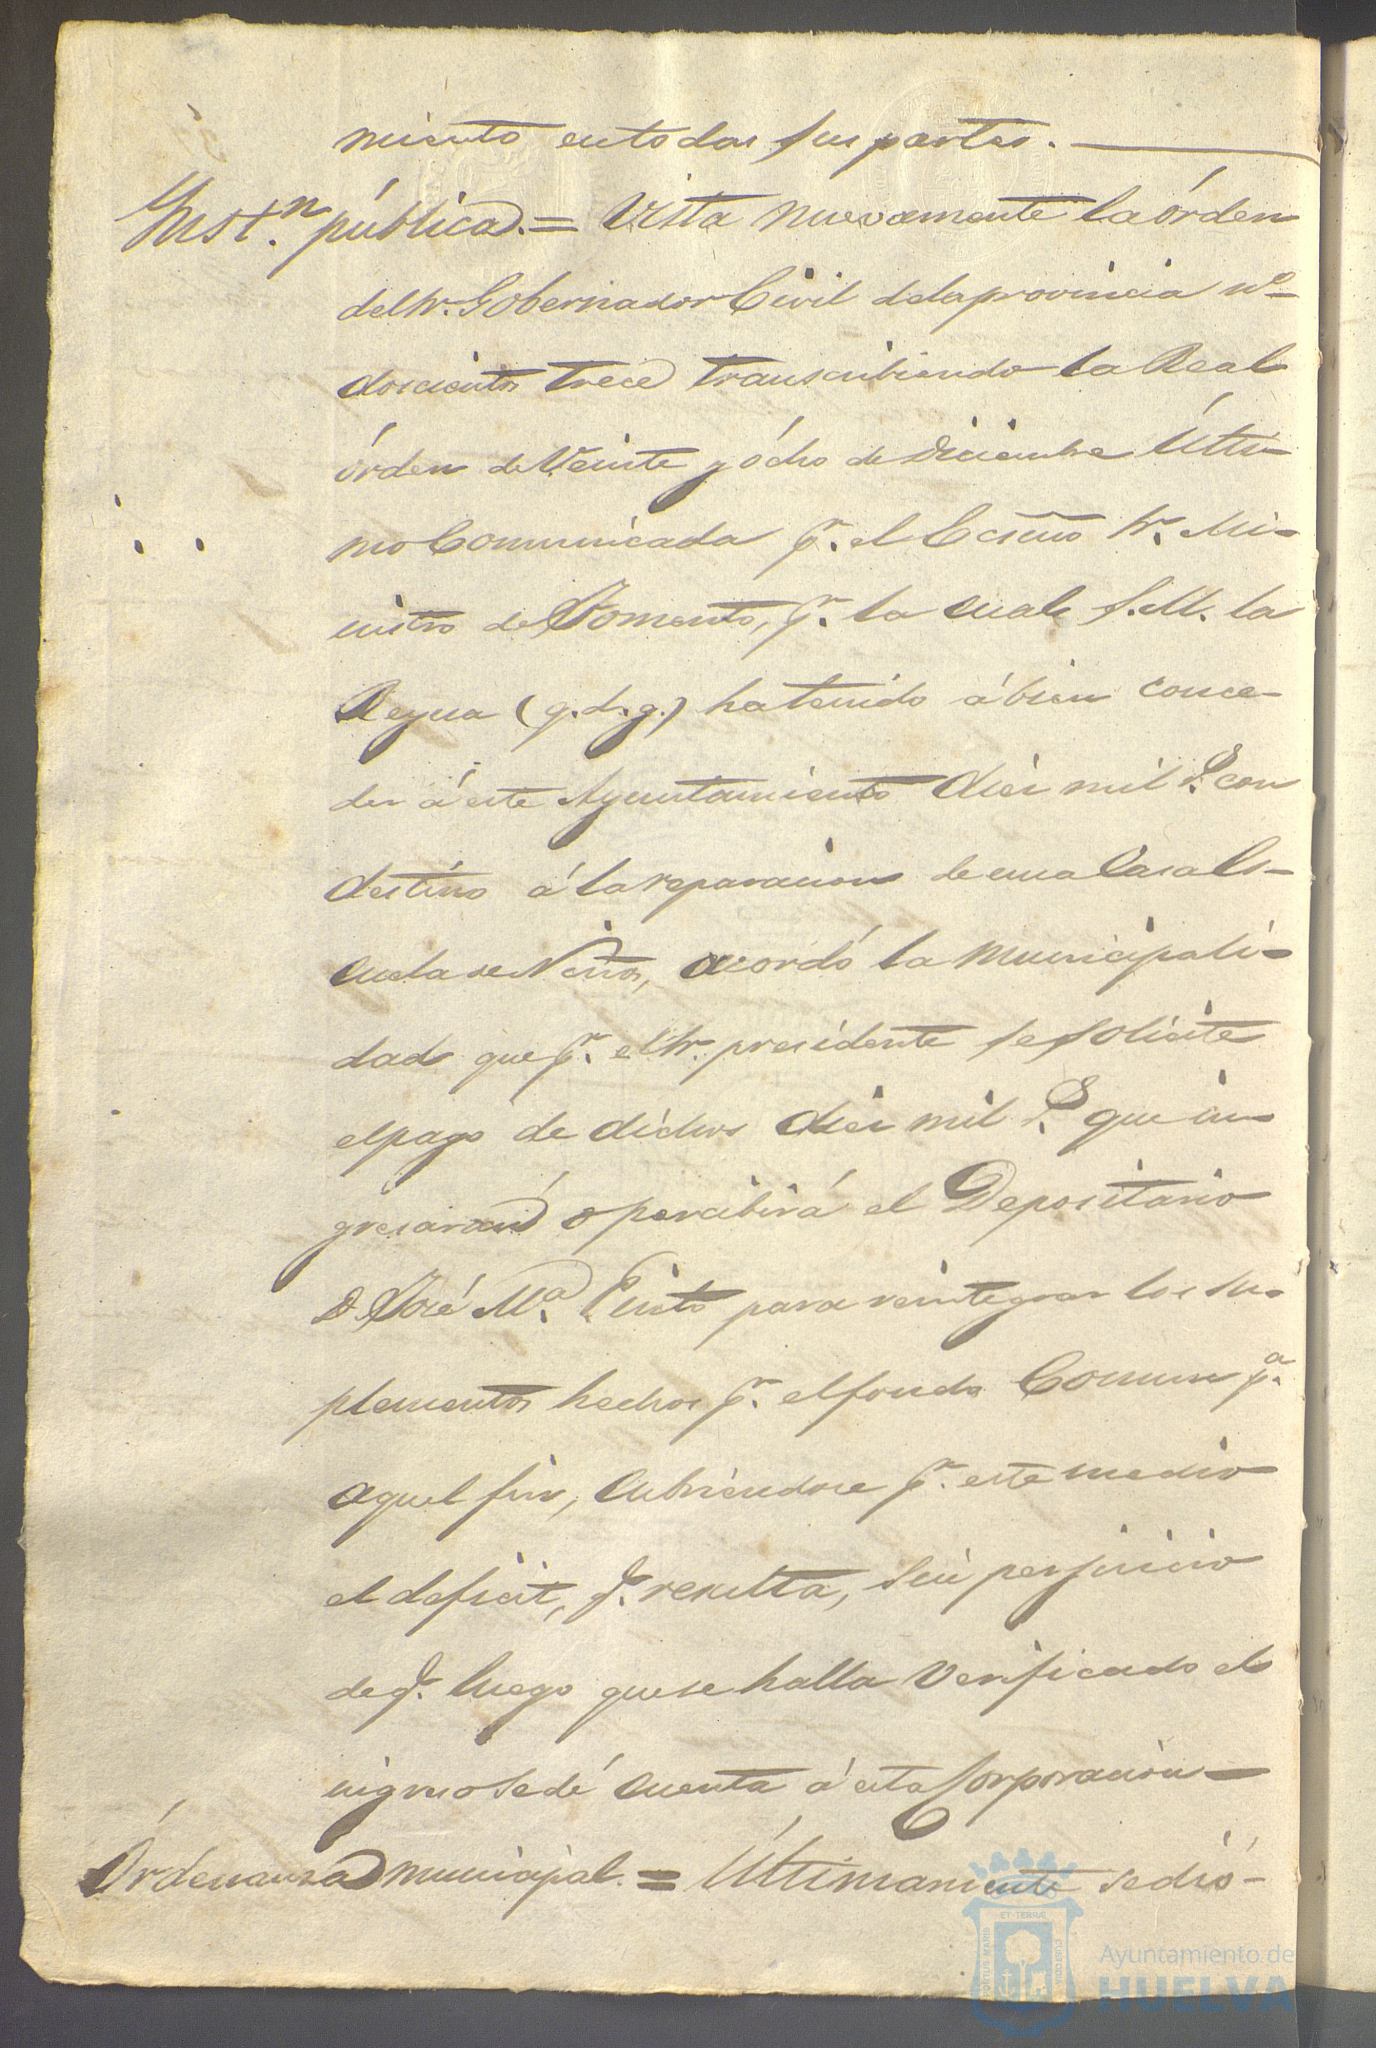 miento en todas sus partes.
Ynst.n pública = Vista nuevamente la órden
del Sr. Gobernador Civil de la provincia nº
doscientos trece transcribiendo la Real
órden de Veinte y ócho de Diciembre Últi-
mo Comunicada pr. el Ecsmo Sr. Mi-
nistro de Fomento, pr. la cual S.M. la
Reyna (q.d.g.) ha tenido á bien conce-
der á este Ayuntamiento diez mil rs. con
destino á la reparacion de una Casa Es-
cuela de Niños, acordó la Municipali-
dad que pr. el Sr. presidente se solicite
el pago de dichos diez mil rs. que in
gresarán o percibirá el Depositario
D. José Mª. Pinto para reintegrar los su-
plementos hechos pr. el fondo Comun pª.
aquel fin, cubriendose pr. este medio
el deficit, q. resulta, sin perjuicio
de q. luego que se halla Verificado el
ingreso se dé cuenta á esta Corporacion
Órdenanza municipal. = Últimamente se dió
Ayuntamiento de
HUELVA